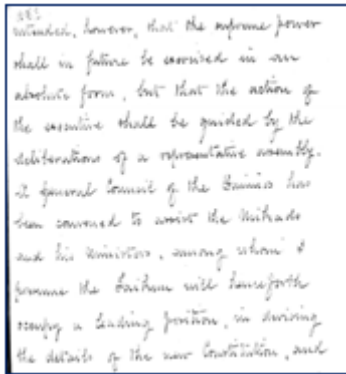 intended, however, that the supreme power
shall in future be exercised in an
absolute form, but that the action of
the executive shall be guided by the
deliberations of a representative assembly.
A general Council of the Daimios has
been convened to assist the Mikado
and his Ministers, among whom I
presume the Taikun will henceforth
occupy a leading position, in devising
the details of the new Constitution, and